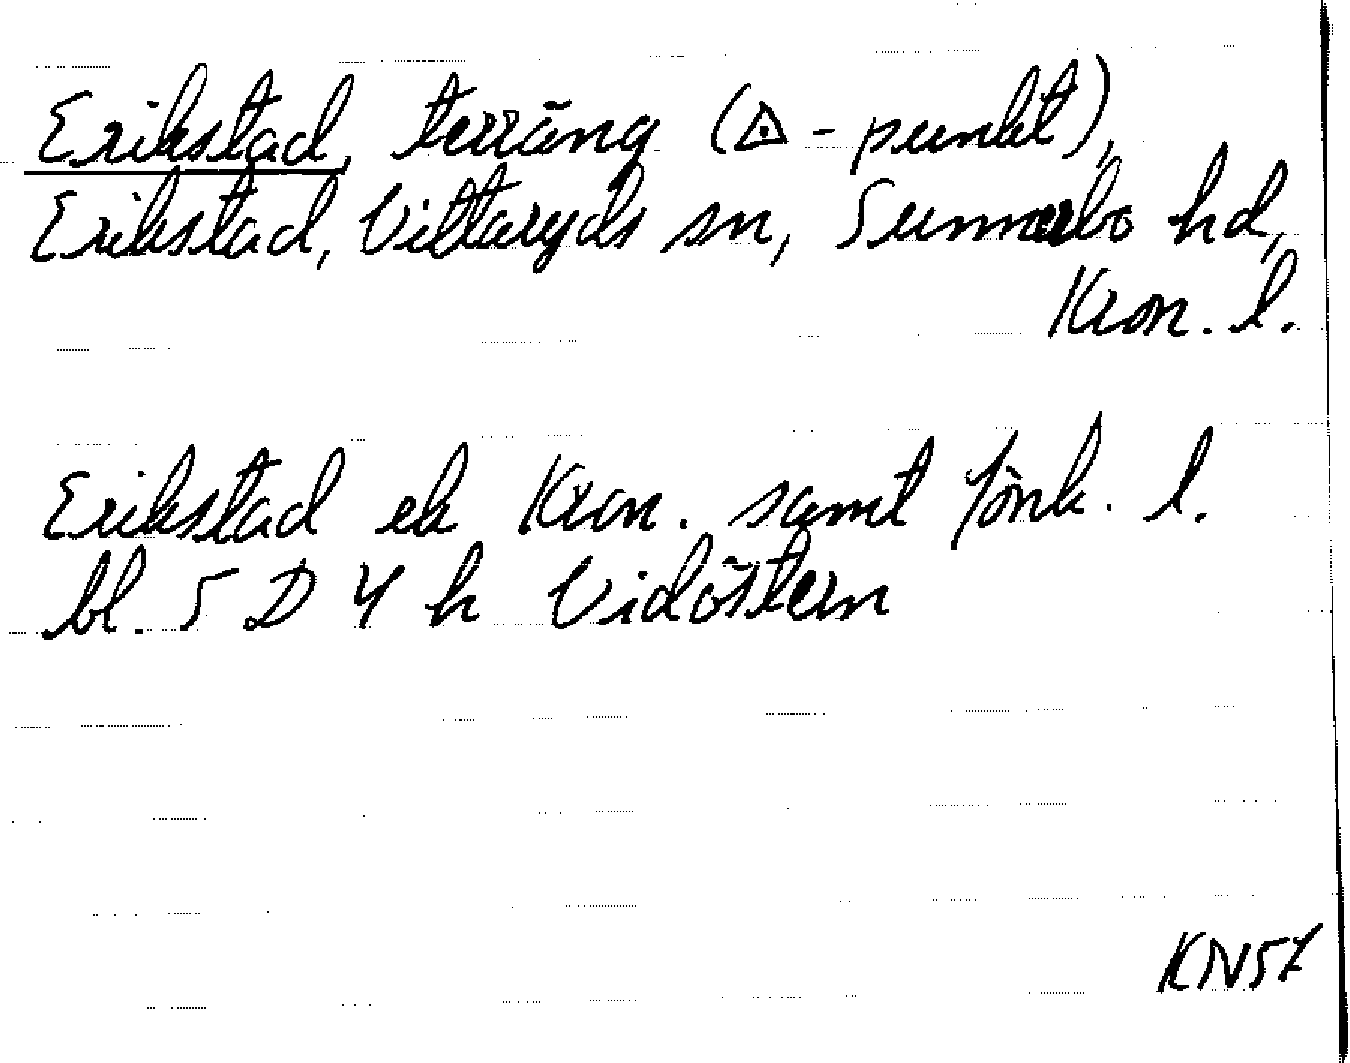 Erikstad, terräng (◬-punkt),
Erikstad, Vittaryds sn, Sunnerbo hd,
Kron. l.
Erikstad ek Kron. samt Jönk. l.
bl. 5 D 4 h Vidöstern
KN57